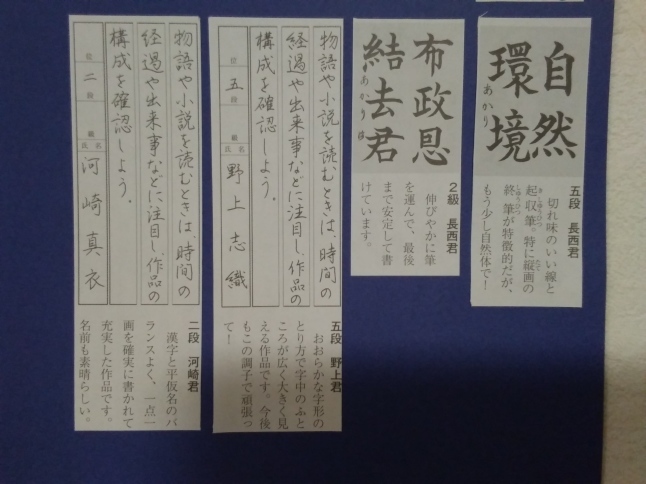 自然
環境
あかり
五段　長西君
切れ味のいい線と
起収筆。特に縦画の
終筆が特徴的だが、
もう少し自然体で！
布政恩
結去君
あかりは
2級　長西君
伸びやかに筆
を運んで、最後
まで安定して書
けています。
物語や小説を読むときは、時間の
経過や出来事などに注目し、作品の
構成を確認しよう。
五段級
氏名
野上志織
五段　野上君
おおらかな字形の
とり方で字中のふと
ころが広く大きく見
える作品です。今後
もこの調子で頑張っ
て！
物語や小説を読むときは、時間の
経過や出来事などに注目し、作品の
構成を確認しよう。
二段級
氏名
河崎真衣
二段　河崎君
漢字と平仮名のバ
ランスよく、一点一
画を確実に書かれて
充実した作品です。
名前も素晴らしい。